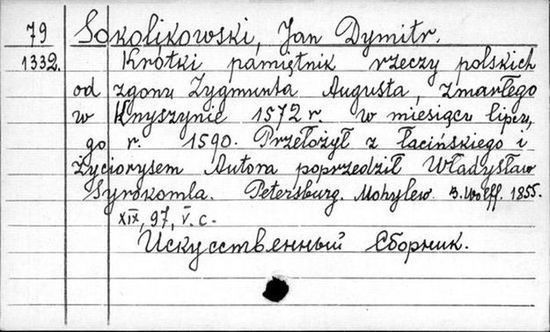 79 Sokolikowski, Jan Dymitr.
1332. Krótki pamiętnik rzeczy polskich
od zgonu Zygmunta Augusta, zmarłego
w Knyszynie 1572 r. w miesiącu lipcu,
go r. 1590. Przełożył z łacińskiego i
Życiorysem Autora poprzedził Władysław
Syrokomla. Petersburg. Mohylew. B. Wolff. 1855.
XIX, 97, V. c.
Искусственный Сборник.